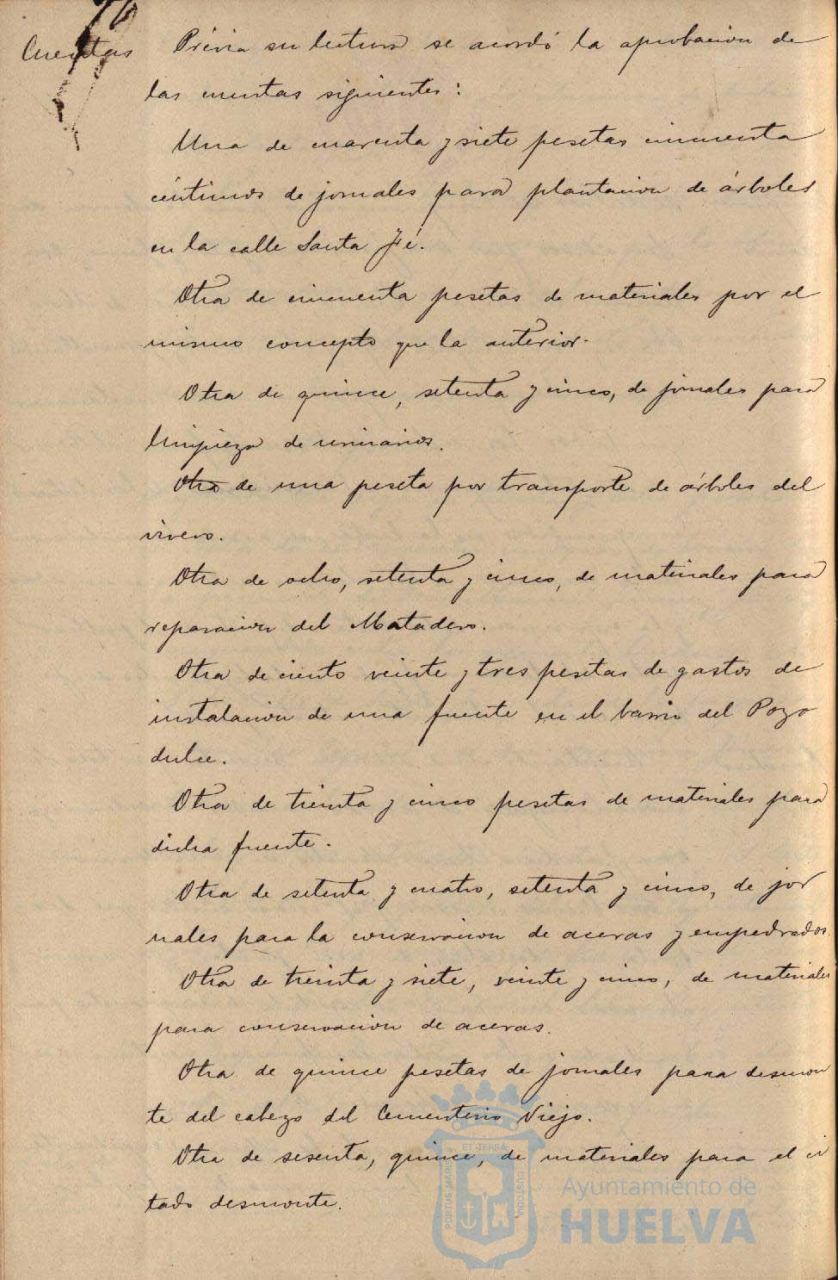 Cuentas Prévia su lectura se acordó la aprobacion de
las cuentas siguientes:
Una de cuarenta y siete pesetas cincuenta
céntimos de jornales para plantacion de árboles
en la calle Santa Fé.
Otra de cincuenta pesetas de materiales por el
mismo concepto que la anterior.
Otra de quince, setenta y cinco, de jornales para
limpieza de urinarios.
Otra de una peseta por transporte de árboles del
vivero.
Otra de ocho, setenta y cinco, de materiales para
reparacion del Matadero.
Otra de ciento veinte y tres pesetas de gastos de
instalacion de una fuente en el barrio del Pozo
dulce.
Otra de treinta y cinco pesetas de materiales para
dicha fuente.
Otra de setenta y cuatro, setenta y cinco, de jor
nales para la conservacion de aceras y empedrados.
Otra de treinta y siete, veinte y cinco, de materiales
para conservacion de aceras.
Otra de quince pesetas de jornales para desmon
te del cabezo del Cementerio Viejo.
Otra de sesenta, quince, de materiales para el ci
tado desmonte.
PORTUS MARIS ET TERRAE CUSTODIA
Ayuntamiento de
HUELVA